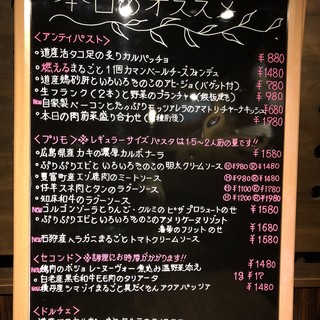 本日のオススメ
<アンティパスト>
・道産活タコ足の炙りカルパッチョ ¥880
・燃えるまるごと1個カマンベールチーズフォンデュ ¥1480
・道産鶏砂肝といろいろきのこのアヒージョ(バゲット付) ¥980
・生フランク(2本)と野菜のプランチャ(鉄板焼き) ¥980
・自家製ベーコンとたっぷりモッツァレラのアマトリチャーナキッシュ
・本日の肉前菜盛り合わせ ¥1980
<プリモ>※レギュラーサイズパスタは1.5〜2人前の量です!!
・広島県産カキの濃厚カルボナーラ ¥1580
・ぷりぷりエビといろいろきのこの明太クリームソース ¥1480
・豊富町産エゾ鹿肉のミートソース ¥1480
・仔羊スネ肉とタンのラグーソース ¥1780
・知床和牛のラグーソース ¥1780
New ゴルゴンゾーラとりんご・クルミのピザプショートのせ ¥1680
・ぷりぷりエビといろいろきのこのアメリケーヌリゾット
のフリットのせ ¥1680
New 石狩産ヘラガニまるごとトマトクリームソース ¥1580
<セコンド>※お料理にお時間がかかります!!
New 鶏肉のポジョレーヌーヴォー煮込み温野菜添え ¥1480
・白老産黒毛和牛モモ肉のタリアータ
New 積丹産シマゾイまるごと具だくさんアクアパッツァ
<ドルチェ>